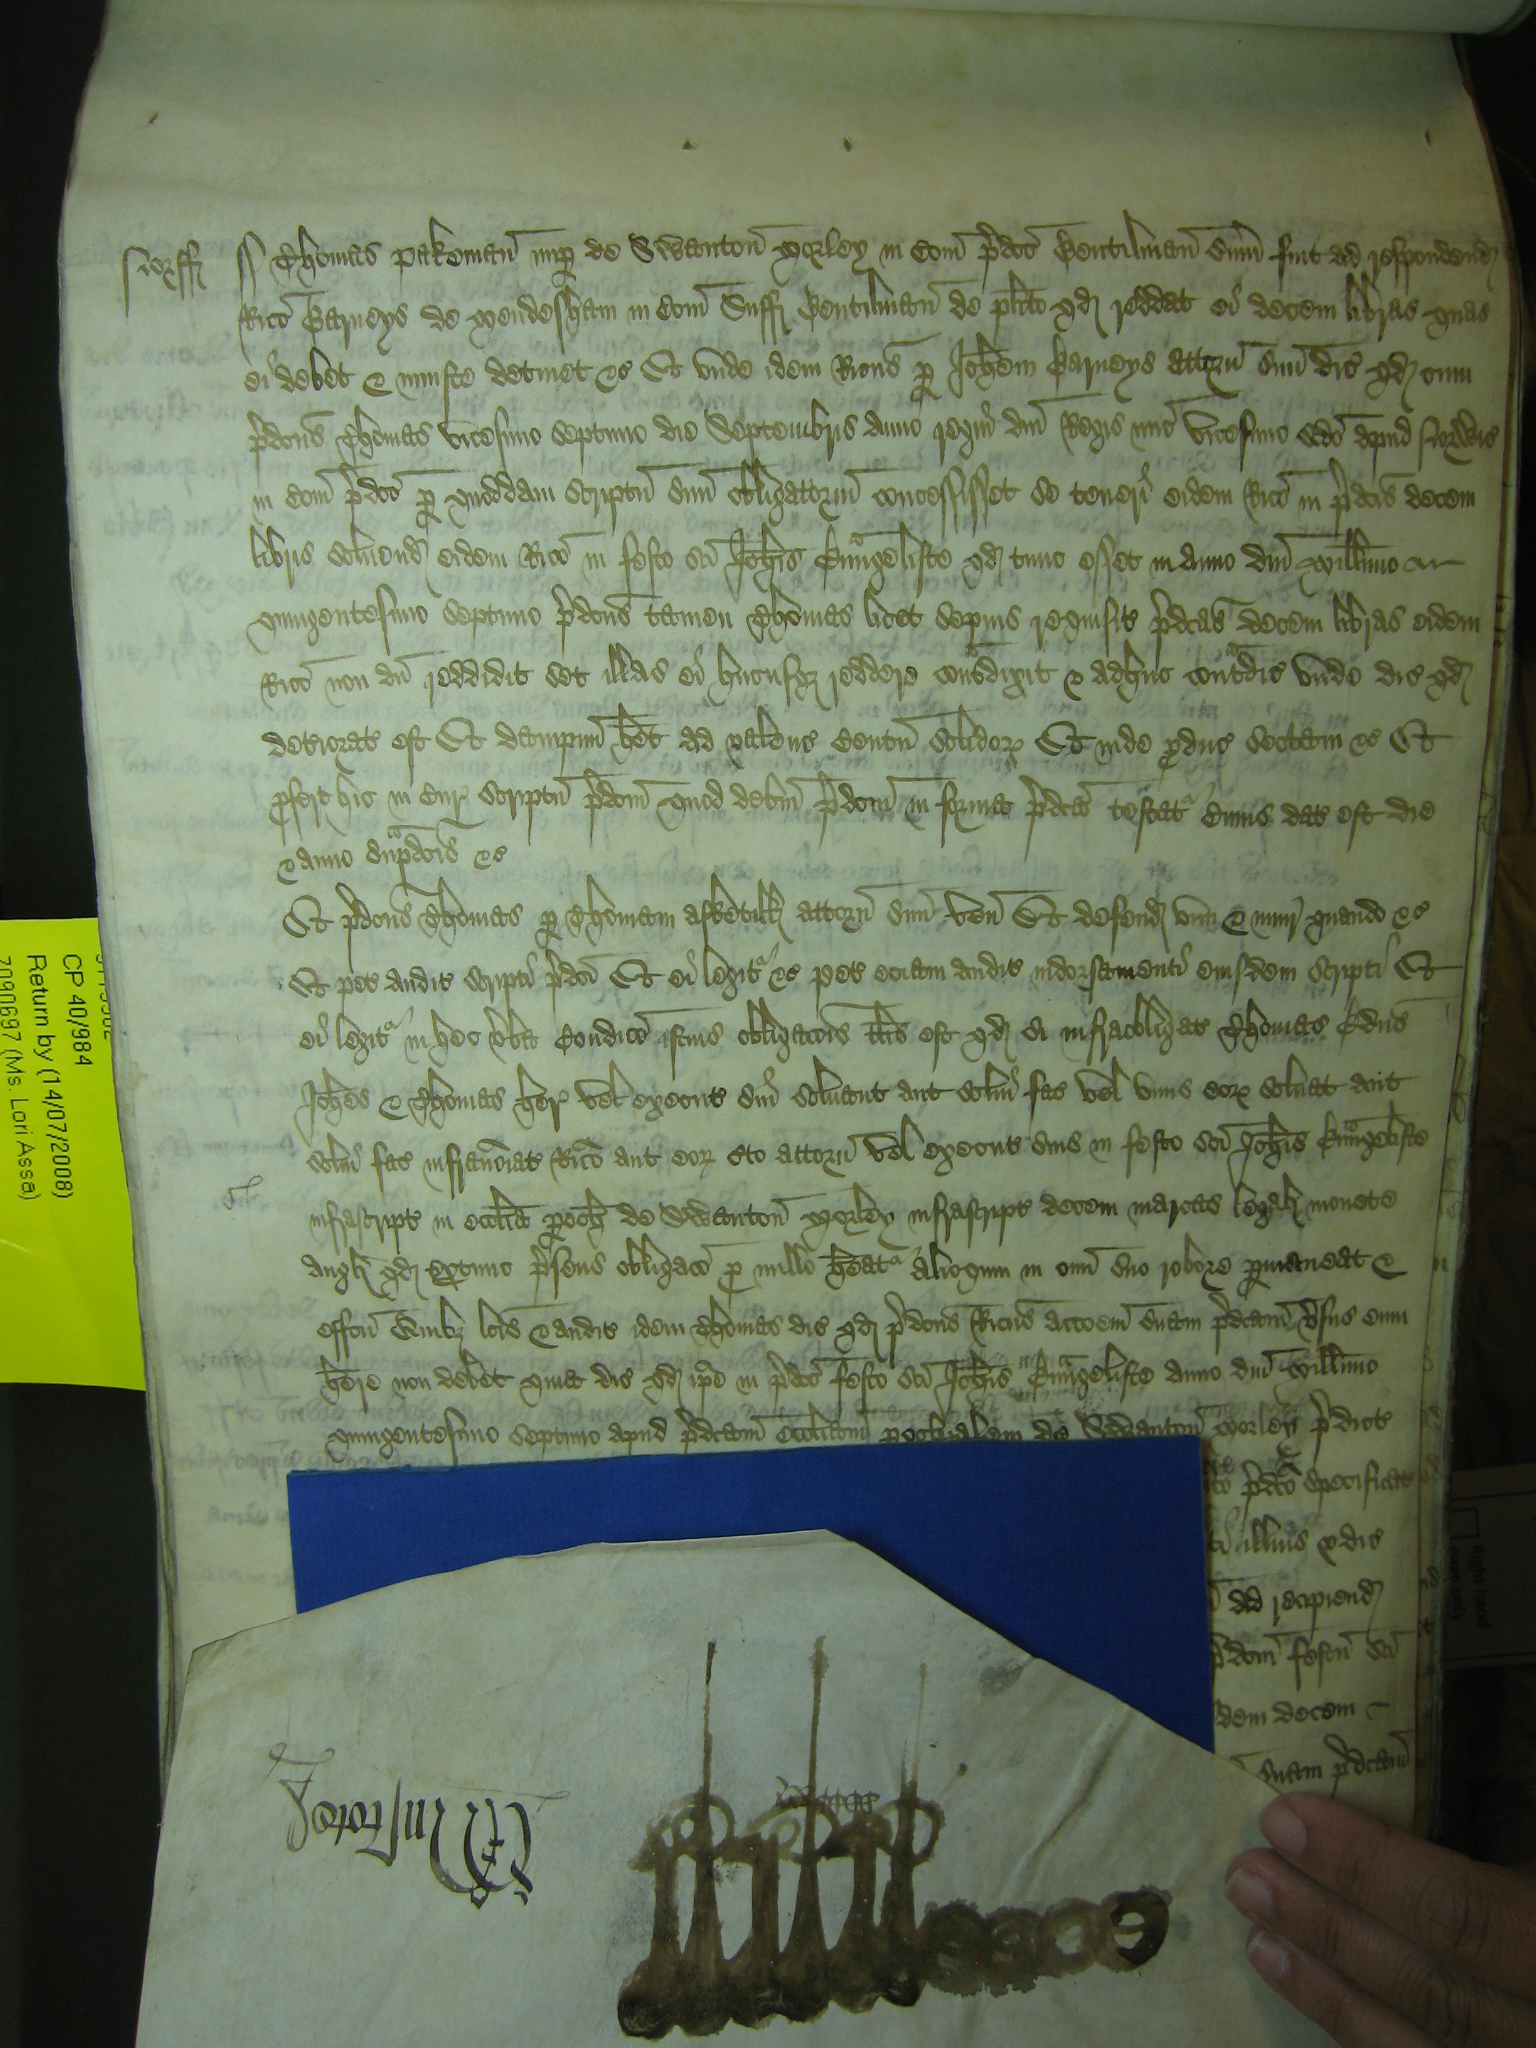 Norff
ss Thomas Pakeman nup de Swanton Morley in Com p'dco Gentilman sum fuit ad respondend
Rico Barneys de Mendesham in Com Suff Gentilman de plito qd reddat ei decem libras quas
ei debet & iniuste detinet &c Et unde idem Ricus p Johem Barneys attorn suu dic qd cum
p'dcus Thomas vicesimo septimo die Septembris anno regni dni Regis nunc vicesimo scdo apud
in Com p'dco p quoddam scriptu suu obligatorium concessisset se teneri eidem Rico in p'dcis decem
libris solvend eidem Rico in festo sci Johis Evangeliste qd tunc esset in anno dni Millimo
quingentesimo septimo p'dcus tamen Thomas licet sepius requisit p'dcas decem libras eidem
Rico non du reddidit set illas ei hucusq reddere cont'dixit & adhuc cont'dic unde dic qd
deteriorat est Et dampnu het ad valenc Centu solidor Et inde pduc sectam &c Et
pfert hic in Cur scriptu p'dcm quod debitu p'dcm in forma p'dca testat' Cuius dat est die
& anno sup'dcis &c
Et p'dcus Thomas p Thomam attorn suu ven Et defend vim & iniur quando &c
Et pet audit scripti p'dci Et ei legit' &c pet eciam audit indorsamenti eiusdem scripti Et
ei legit' in hec v'ba Condico istius obligacois tlis est qd si infraobligat Thomas
Johes & Thomas her vel execut sui solvant aut solvi fac vel unus eor solvat aut
solvi fac infranoiat Rico aut eor c'to attorn vel execut suis in festo sci Johis Evangeliste
infrascript in ecclia poch de Swanton Morley infrascript decem marcas legal monete
Angl qd extunc p'sens obligaco p nullo heat' alioquin in omi suo robore pmaneat &
effcu Quibz lcis & audit idem Thomas dic qd p'dcus Ricus accoem suam p'dcam v'sus eum
here non debet quia dic qd ipe in p'dco festo sci Johis Evangeliste anno dni Millimo
quingentesimo septimo apud p'dcam eccliam pochialem de Swanton Morley p'dict
p'dco specificat
illius & dic
ad recipiend
p'dcm festu sci
decem
suam p'dcam
CP 40/984
Return by (14/07/2008)
7090697 (Ms. Lori Assa)
Right hand
only